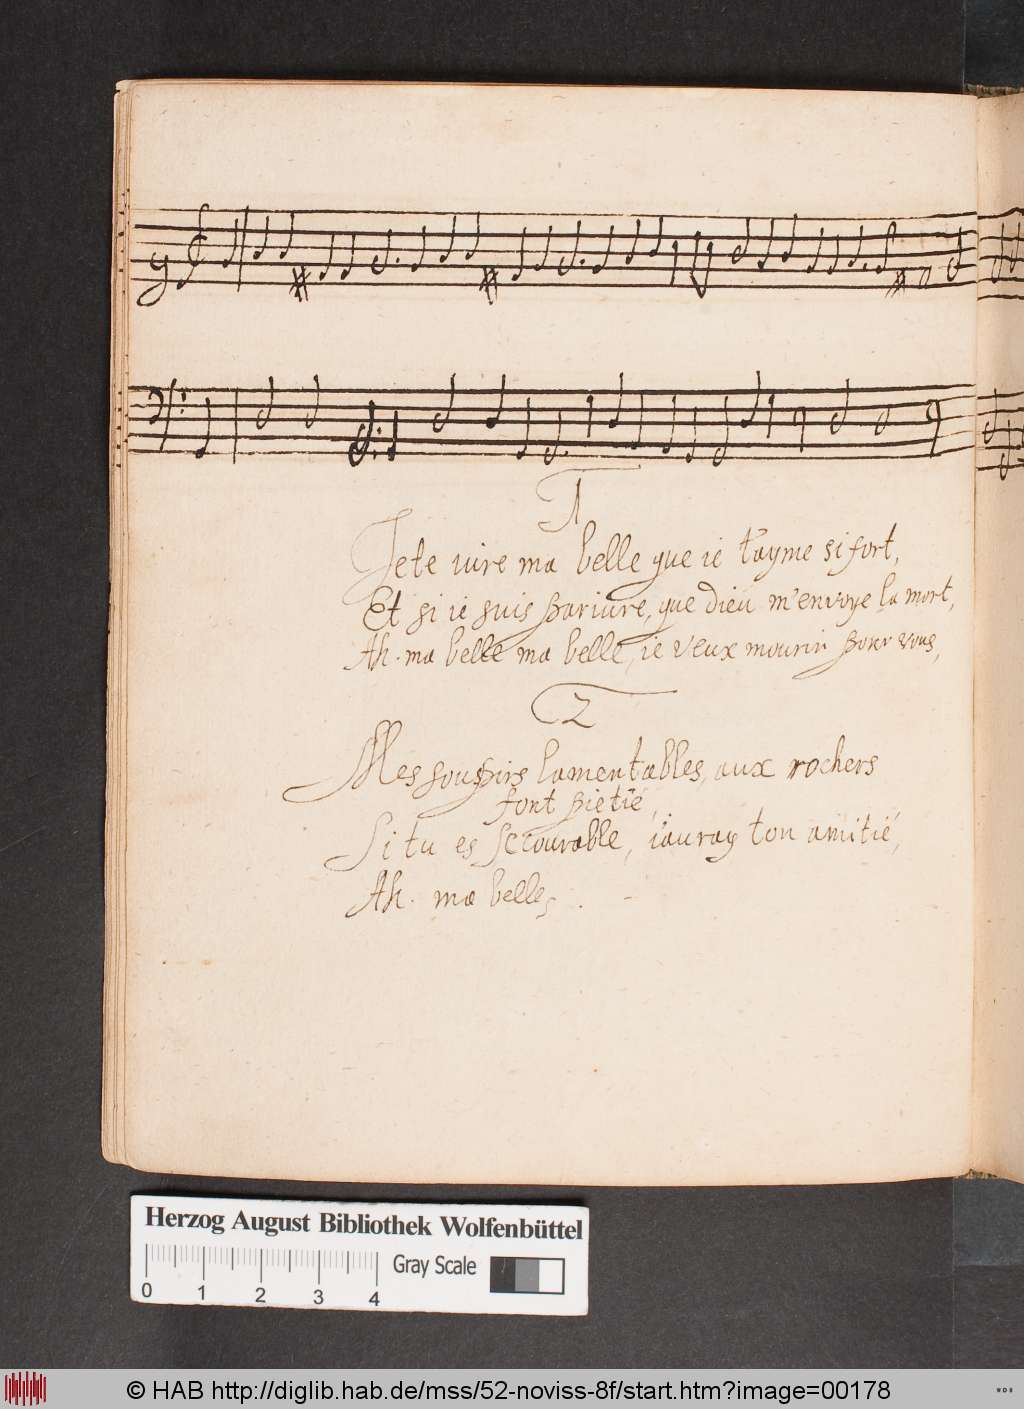 1
Je te iure ma belle que ie t'ayme si fort,
Et si ie suis pariure, que dieu m'envoye la mort,
Ah. ma belle ma belle, ie veux mourir pour vous,
2
Mes souspirs lamentables, aux rochers
font pietié,
Si tu es secourable, i'auray ton amitié,
Ah. ma belle
Herzog August Bibliothek Wolfenbüttel
Gray Scale
0 1 2 3 4
© HAB http://diglib.hab.de/mss/52-noviss-8f/start.htm?image=00178